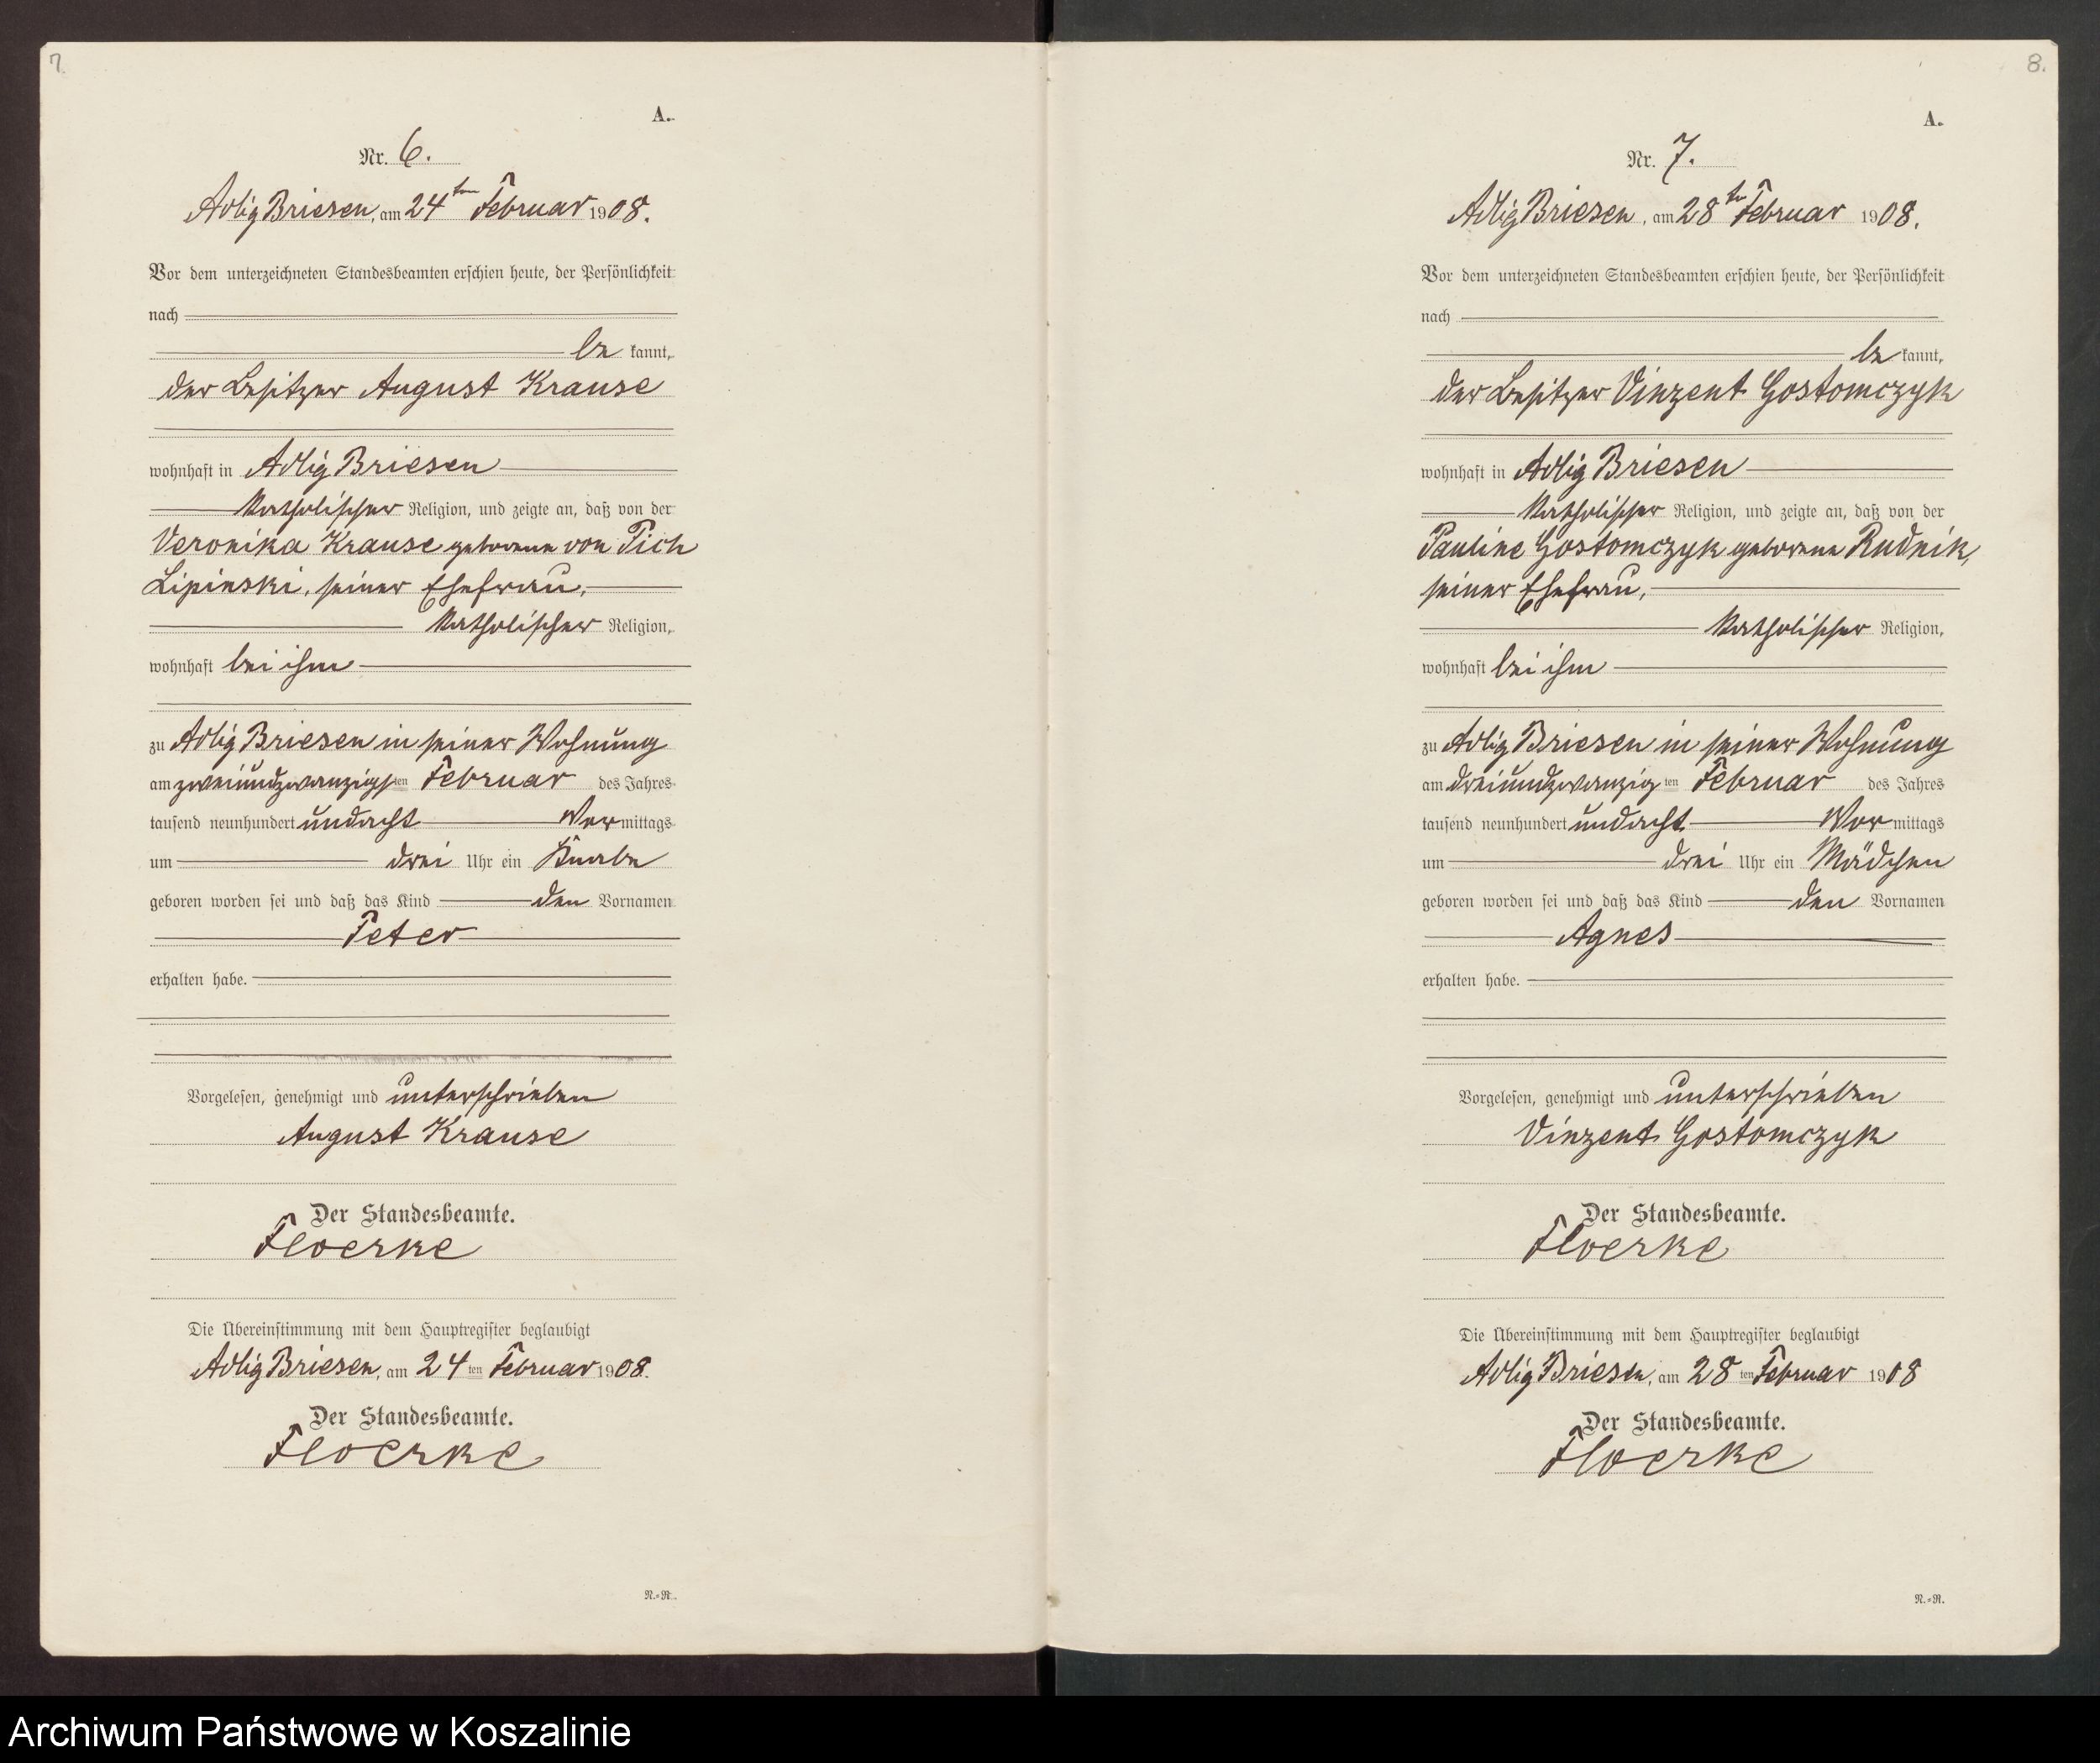 7.
A.
Nr. 6.
Adlig Briesen, am 24ten Februar 1908.
Vor dem unterzeichneten Standesbeamten erschien heute, der Persönlichkeit
nach
be kannt,
der Besitzer August Krause
wohnhaft in Adlig Briesen
katholischer Religion, und zeigte an, daß von der
Veronika Krause geborene von Pich
Lipinski, seiner Ehefrau,
katholischer Religion,
wohnhaft bei ihm
zu Adlig Briesen in seiner Wohnung
am zweiundzwanzigsten Februar des Jahres
tausend neunhundert undacht Vormittags
um drei Uhr ein Knabe
geboren worden sei und daß das Kind den Vornamen
Peter
erhalten habe.
Vorgelesen, genehmigt und unterschrieben
August Krause
Der Standesbeamte.
Floerke
Die Übereinstimmung mit dem Hauptregister beglaubigt
Adlig Briesen, am 24ten Februar 1908.
Der Standesbeamte.
Floerke
N.=R.
8.
A.
Nr. 7.
Adlig Briesen, am 28ten Februar 1908.
Vor dem unterzeichneten Standesbeamten erschien heute, der Persönlichkeit
nach
be kannt,
der Besitzer Vinzent Gostomczyk
wohnhaft in Adlig Briesen
katholischer Religion, und zeigte an, daß von der
Pauline Gostomczyk geborene Rudnik,
seiner Ehefrau,
katholischer Religion,
wohnhaft bei ihm
zu Adlig Briesen in seiner Wohnung
am dreiundzwanzigten Februar des Jahres
tausend neunhundert undacht Vormittags
um drei Uhr ein Mädchen
geboren worden sei und daß das Kind den Vornamen
Agnes
erhalten habe.
Vorgelesen, genehmigt und unterschrieben
Vinzent Gostomczyk
Der Standesbeamte.
Floerke
Die Übereinstimmung mit dem Hauptregister beglaubigt
Adlig Briesen, am 28ten Februar 1908
Der Standesbeamte.
Floerke
N.=R.
Archiwum Państwowe w Koszalinie